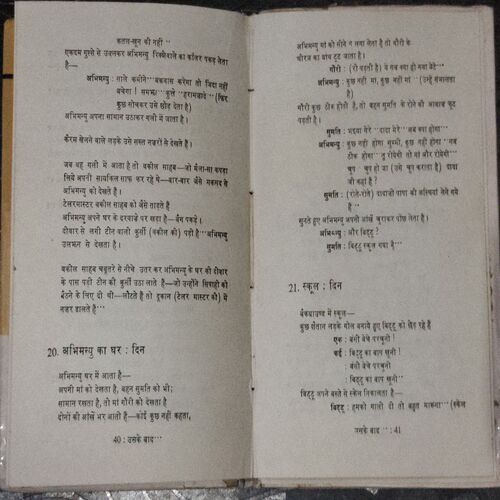 कतल-खून की नहीं ''
एकदम गुस्से से उबलकर अभिमन्यु रिक्शेवाले का कॉलर पकड़ लेता
है—
अभिमन्यु : साले कमीने '''बकवास करेगा तो जिंदा नहीं
बचेगा ! समझा''' कुत्ते ''हरामजादे''' (फिर
कुछ सोचकर उसे छोड़ देता है)
अभिमन्यु अपना सामान उठाकर गली में आता है।
कैरम खेलने वाले लड़के उसे सख्त नजरों से देखते हैं।
जब वह गली में आता है तो वकील साहब—जो मैला-सा कपड़ा
लिये अपनी सायकिल साफ कर रहे थे—बार-बार वैसे मकसद से
अभिमन्यु को देखते हैं।
टेलरमास्टर वकील साहब को बैसे ताड़ते हैं
अभिमन्यु अपने घर के दरवाजे पर खड़ा है—बैग पकड़े।
दीवार से लगी टीन वाली कुर्सी (वकील की) पड़ी है'''अभिमन्यु
उलझन से देखता है।
वकील साहब चबूतरे से नीचे उतर कर अभिमन्यु के घर की दीवार
के पास पड़ी टीन की कुर्सी उठा लाते हैं—जो उन्होंने सिपाही को
बैठने के लिए दी थी—लौटते हैं तो दूकान (टेलर मास्टर की) में
नजर डालते हैं'''
20. अभिमन्यु का घर : दिन
अभिमन्यु घर में आता है—
अपनी मां को देखता है, बहन सुमति को भी;
सामान रखता है, तो मां गौरी को देखता है
दोनों की आँखें भर आती हैं—कोई कुछ नहीं कहता,
40 : उसके बाद'''
अभिमन्यु मां को सीने से लगा लेता है तो गौरी के
धीरज का बांध टूट जाता है।
गौरी : (रो पड़ती है) ये सब क्या हो गया बेटे'''
अभिमन्यु : कुछ नहीं मां, कुछ नहीं मां '' (उन्हें संभालता
है)
गौरी कुछ ठीक होती है, तो बहन सुमति के रोने की आवाज फूट
पड़ती है।
सुमति : भइया मेरे ''दादा मेरे '''अब क्या होगा''
अभिमन्यु : कुछ नहीं होगा सुम्मी, कुछ नहीं होगा ''सब
ठीक होगा'' तू रोयेगी तो मां और रोयेगी
चुप चुप हो जा (उसे चुप कराता है) दादा
जी कहां हैं ?
सुमति : (रोते-रोते) दादाजी पापा की अस्थियां लेने गये
हैं ''
सुनते हुए अभिमन्यु अपनी आँखें चुराकर पोंछ लेता है।
अभिमन्यु : और बिट्टू ?
सुमति : बिट्टू स्कूल गया है'''
21. स्कूल : दिन
बैकग्राउण्ड में स्कूल—
कुछ शैतान लड़के गोल बनाये हुए बिट्टू को छेड़ रहे हैं
एक : बंसी बेचे परचूनी !
कई : बिट्टू का बाप खूनी !
बंसी बेचे परचूनी
बिट्टू का बाप खूनी''
बिट्टू अपने बस्ते से स्केल निकालता है—
बिट्टू : हमको गाली दी तो बहुत मारूंगा'''(स्केल
उसके बाद ''' : 41